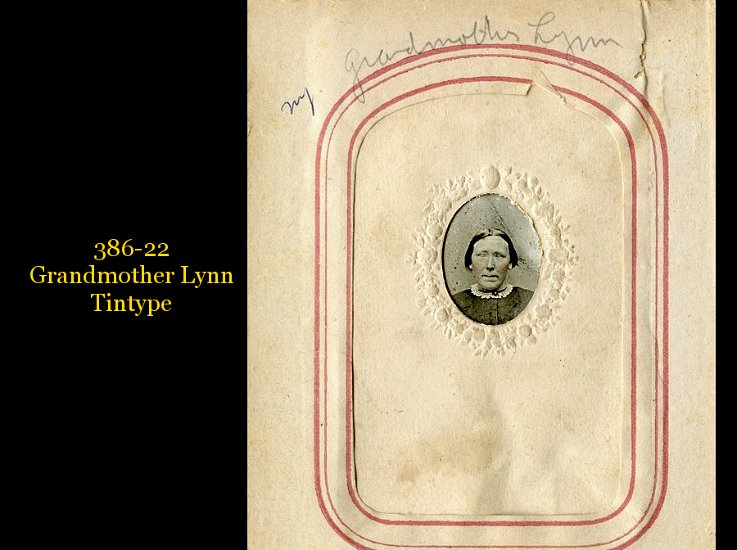 386-22
Grandmother Lynn
Tintype
Grandmother Lynn
my